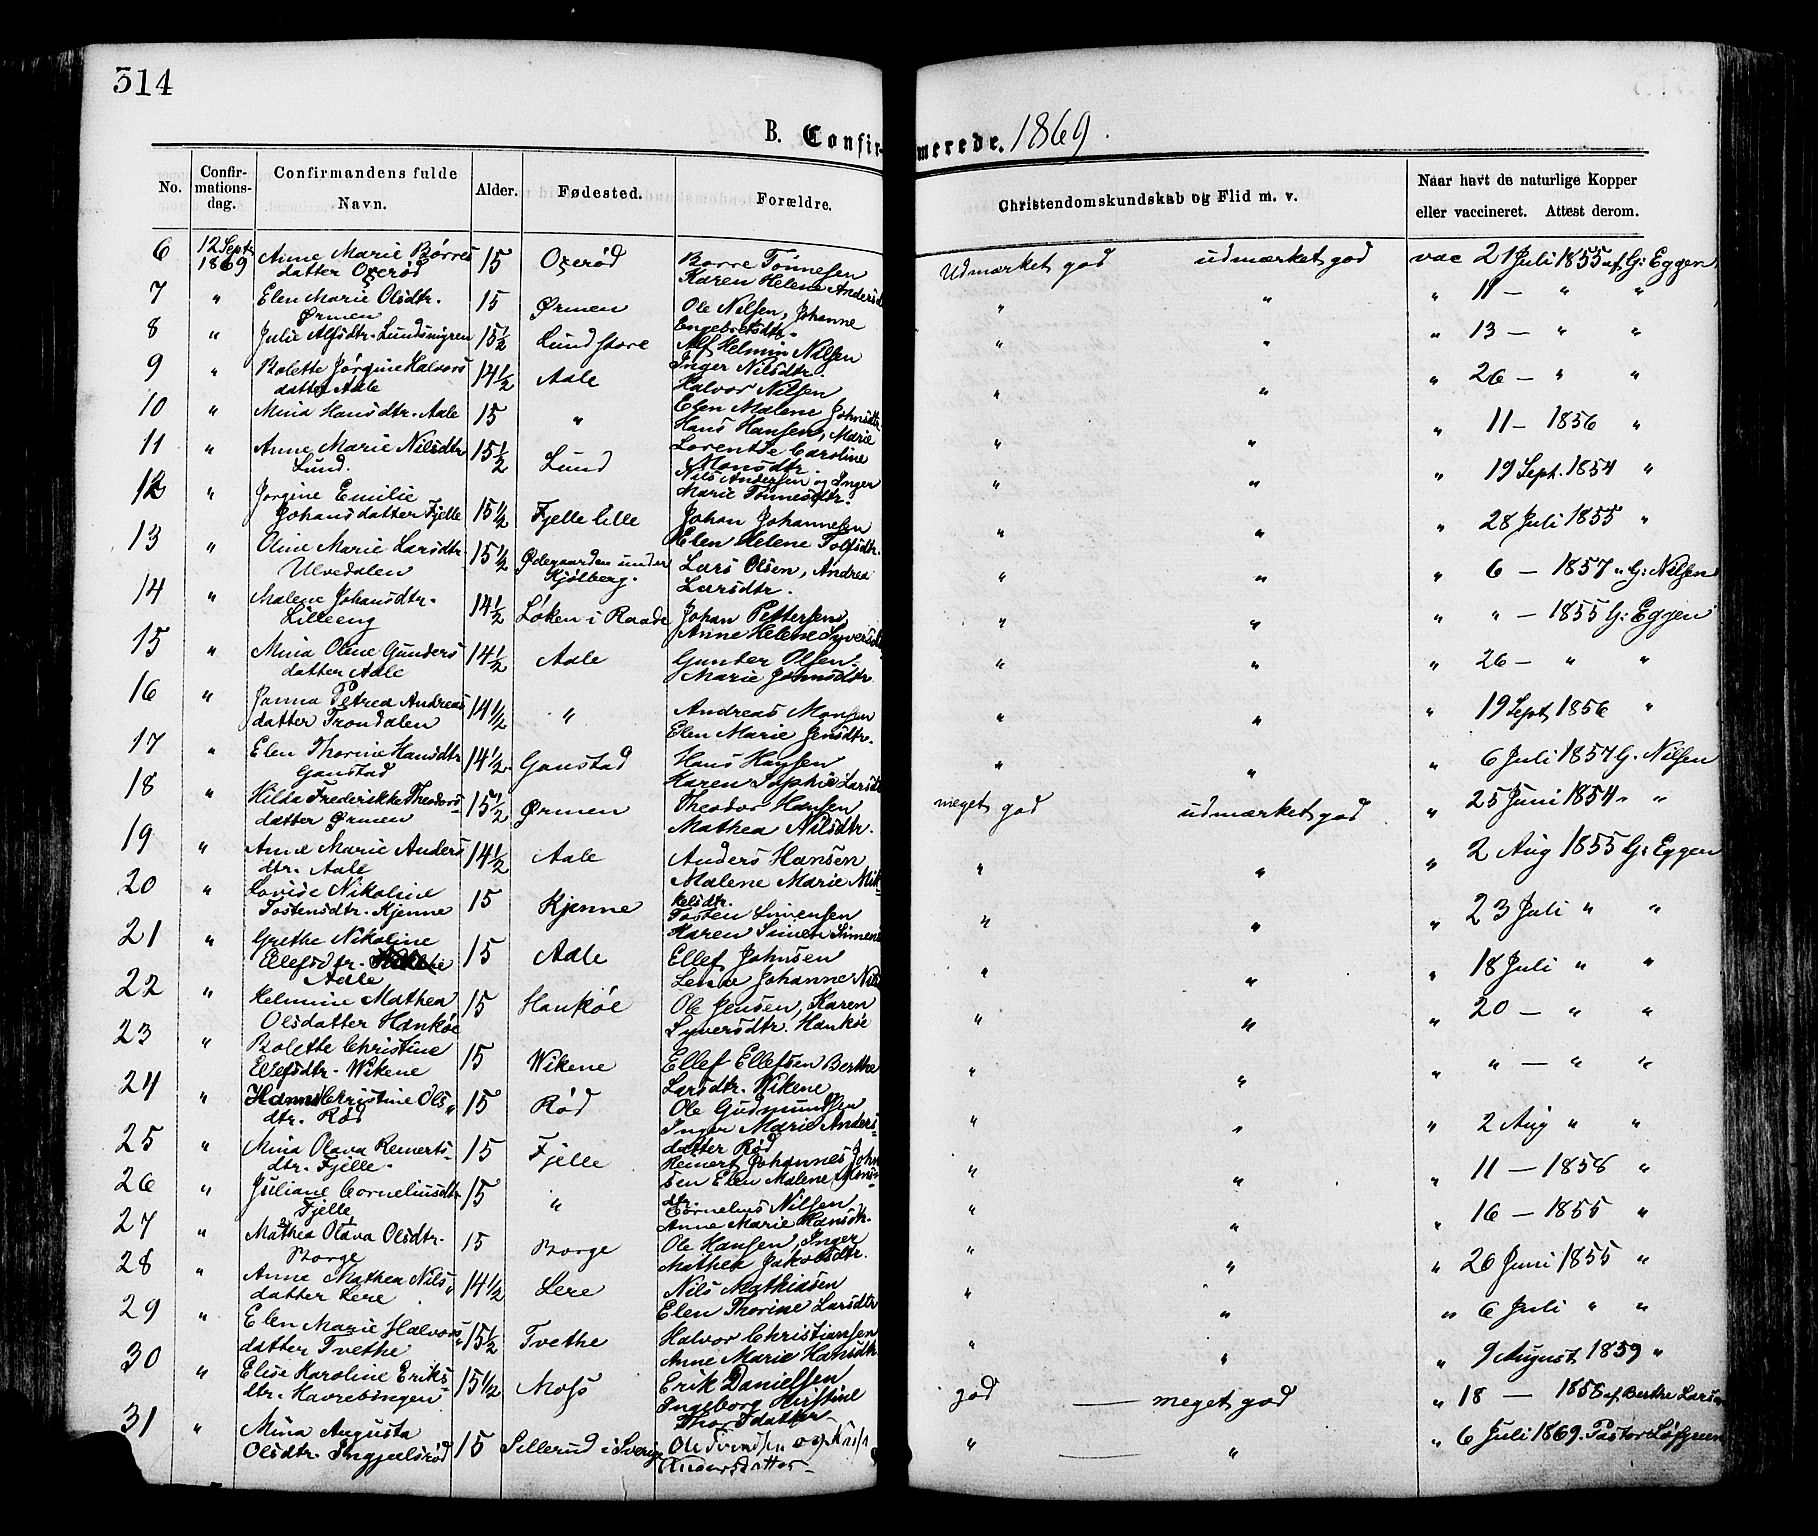 314
B. Confirmerede. 1869.
No. Confirmationsdag. Confirmandens fulde Navn. Alder. Fødested. Forældre. Christendomskundskab og Flid m. v. Naar havt de naturlige Kopper eller vaccineret. Attest derom.
6 12 Septr 1869 Anne Marie Børres 15 Oxerød Borre Tønnesen Udmærket god udmærket god vac 21 Juli 1855 af G: Eggen
datter Oxerød Karen Helene Andersd
7 " Elen Marie Olsdtr. 15 Ørmen Ole Nilsen, Johanne " " " 11 — " "
Ørmen Engebretsdtr.
8 " Julie Alfsdtr. Lundsmyren 15½ Lund store Alf Helmin Nilsen " " " 13 — " "
Inger Nilsdtr.
9 " Bolette Jørgine Halvors 14½ Aale Halvor Nilsen " " " 26 — " "
datter Aale Elen Malene Johnsdtr
10 " Mina Hansdtr. Aale 15 " Hans Hansen, Marie " " " 11 — 1856 "
Lorentse Caroline
Monsdtr.
11 " Anne Marie Nilsdtr 15½ Lund Nils Andersen og Inger " " " 19 Sept. 1854 "
Lund. Marie Tønnesdtr.
12 " Jorgine Emilie 15½ Fjelle lille Johan Johannesen " " " 28 Juli 1855 "
Johansdatter Fjelle Elen Helene Tolfsdtr.
13 " Oline Marie Larsdtr. 15½ Ødegaarden under Lars Olsen, Andrea " " " 6 — 1857 " G: Nilsen
Ulvedalen Kjølberg. Larsdtr.
14 " Malene Johansdtr. 14½ Løken i Raade Johan Pettersen " " " " — 1855 G: Eggen
Lilleeng Anne Helene Syversdtr
15 " Mina Oline Gunders 14½ Aale Gunder Olsen " " " 26 — " "
datter Aale Marie Johnsdtr.
16 " Janna Petrea Andreas 14½ " Andreas Monsen " " " 19 Sept 1856 "
datter Trondalen Elen Marie Jensdtr.
17 " Elen Thorine Hansdtr 14½ Ganstad Hans Hansen " " " 6 Juli 1857 G. Nilsen
Ganstad Karen Sophie Larsdt
18 " Hilda Frederikke Theodors 15½ Ørmen Theodor Hansen meget god udmærket god " 25 Juni 1854 " "
datter Ørmen Mathea Nilsdtr.
19 " Anne Marie Anders 14½ Aale Anders Hansen " " " 2 Aug 1855 G: Eggen
dtr. Aale Malene Marie Mik-
kelsdtr.
20 " Lovise Nikoline 15 Kjenne Tosten Simensen " " " 23 Juli " "
Tostensdtr. Kjenne Karen Simen Simens
21 " Grethe Nikoline 15 Aale Ellef Johnsen " " " 18 Juli " "
Ellefsdtr. Aale Johanne Nils
22 " Helmine Mathea 15 Hankøe Ole Jensen, Karen " " " 20 — " "
Olsdatter Hankøe Syversdtr. Hankøe
23 " Bolette Christine 15 Wikene Ellef Ellefsen Berthe " " " " — " "
Ellefsdtr. Wikene Larsdtr. Wikene
24 " Hanna Christine Ols 15 Rød Ole Gudmundsen " " " 2 Aug " "
dtr. Rød Inger Marie Anders-
datter Rød
25 " Mina Olava Remerts- 15 Fjelle Remert Johannes John " " " 11 — 1858 "
dtr. Fjelle. sen Elen Malene Mons-
dtr.
26 " Juliane Corneliusdtr 15 " Cornelius Nilsen " " " 16 — 1855 "
Fjelle Anne Marie Hansdtr.
27 " Mathea Olava Olsdtr. 15 Borge Ole Hansen, Inger " " " 26 Juni 1855 "
Borge Mathea Jakobsdtr.
28 " Anne Mathea Nils 14½ Lere Nils Mathiasen " " " 6 Juli " "
datter Lere Elen Thorine Larsdtr
29 " Elen Marie Halvors 15½ Tvethe Halvor Christiansen " " " 9 August 1859 "
datter Tvethe Anne Marie Hansdtr
30 " Elise Karoline Eriks 15½ Moss Erik Danielsen god — meget god " 18 — 1858 af Berthe Larsen
dtr. Havrebingen Ingeborg Kirstine
Thorsdatter
31 " Mina Augusta 15 Sillerud i Sverige Ole Svendsen og Kaisa " — " " 6 Juli 1869. Pastor Løfgreen
Olsdtr. Ingjerlsrød Andersdatter